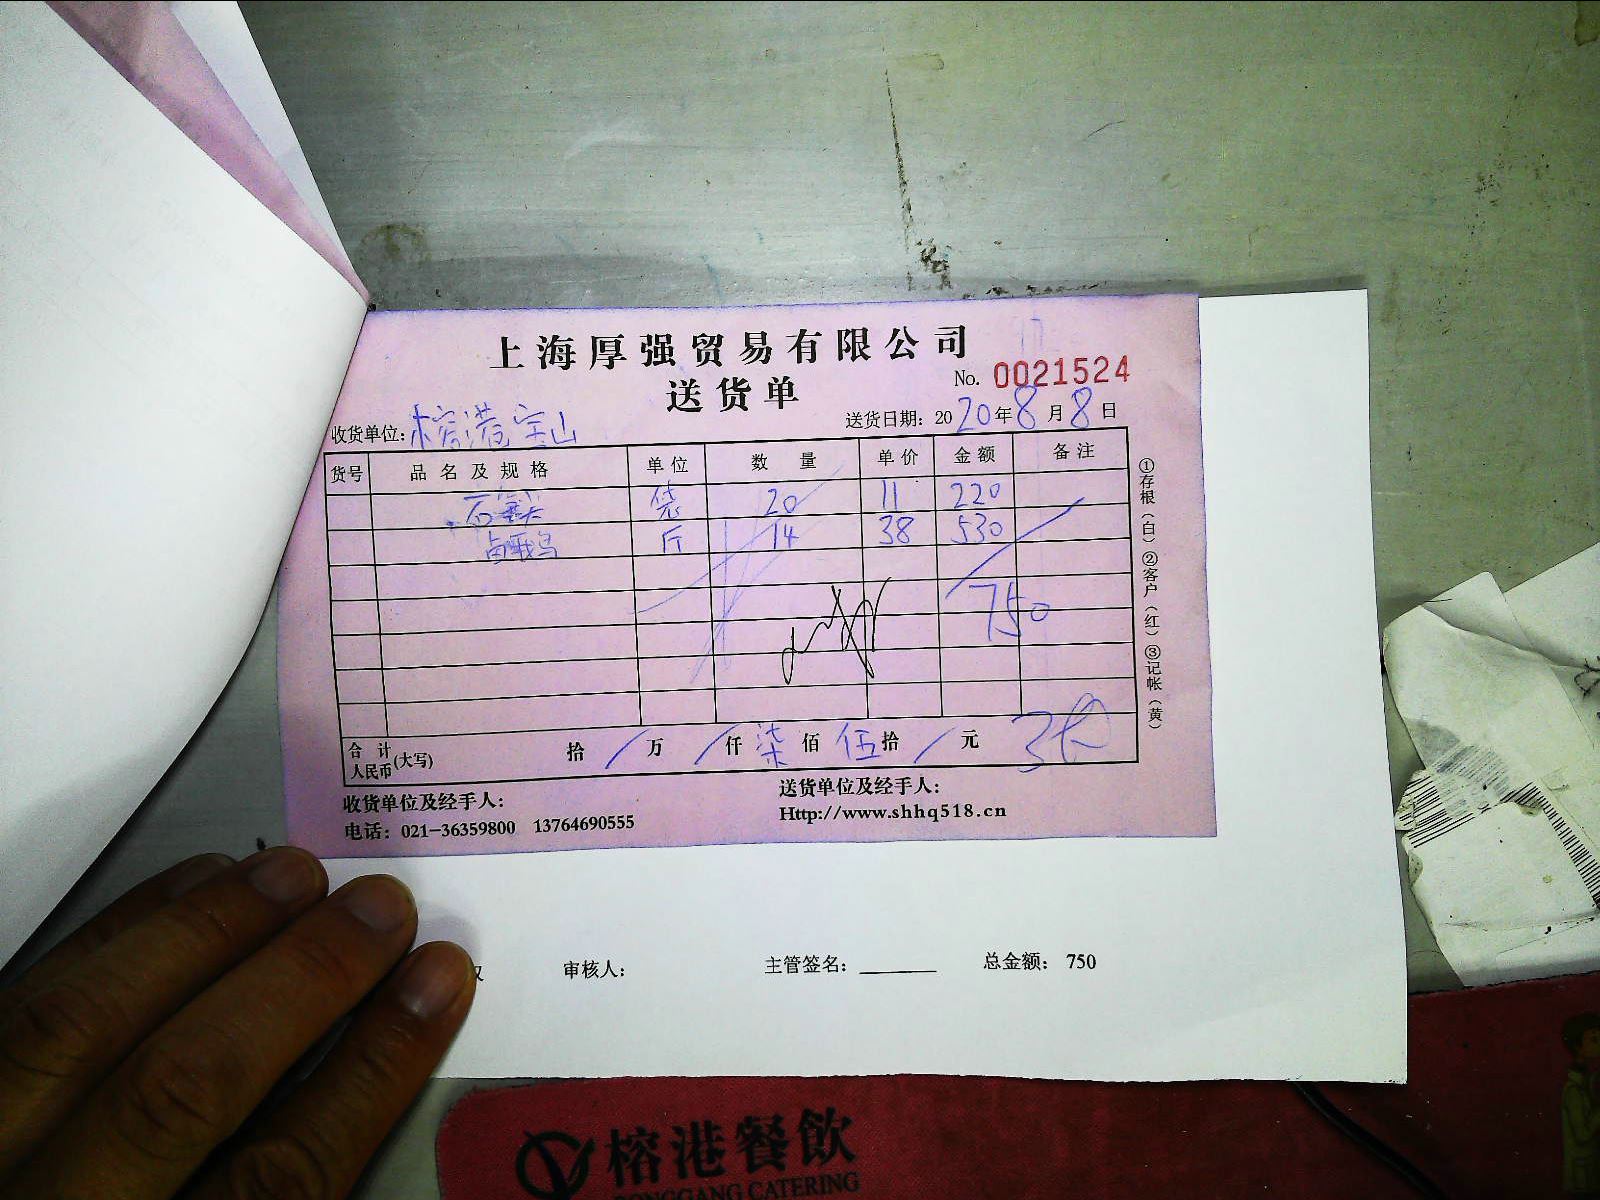 上海厚强贸易有限公司
送货单
No. 0021524
收货单位: 榕港宝山
送货日期: 2020年8月8日
货号 品名及规格 单位 数量 单价 金额 备注
袋 20 11 220
斤 14 38 530
750
合计人民币(大写) 拾 / 万 / 仟 柒 佰 伍 拾 / 元
①存根(白) ②客户(红) ③记帐(黄)
收货单位及经手人:
送货单位及经手人:
电话: 021-36359800 13764690555
Http://www.shhq518.cn
审核人: 主管签名: 总金额: 750
榕港餐飲
RONGGANG CATERING